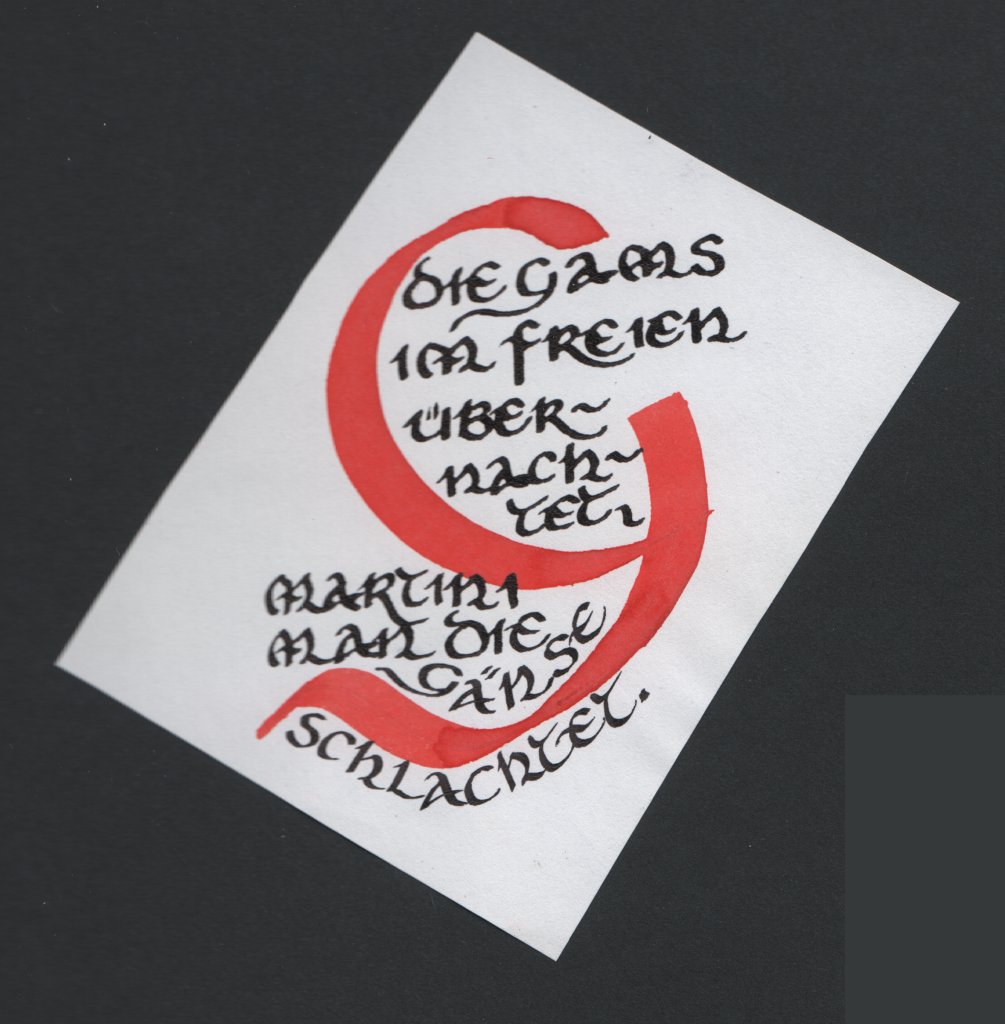 G
DIE GAMS
IM FREIEN
ÜBER~
NACH~
TET,
MARTINI
MAN DIE
GÄNSE
SCHLACHTET.